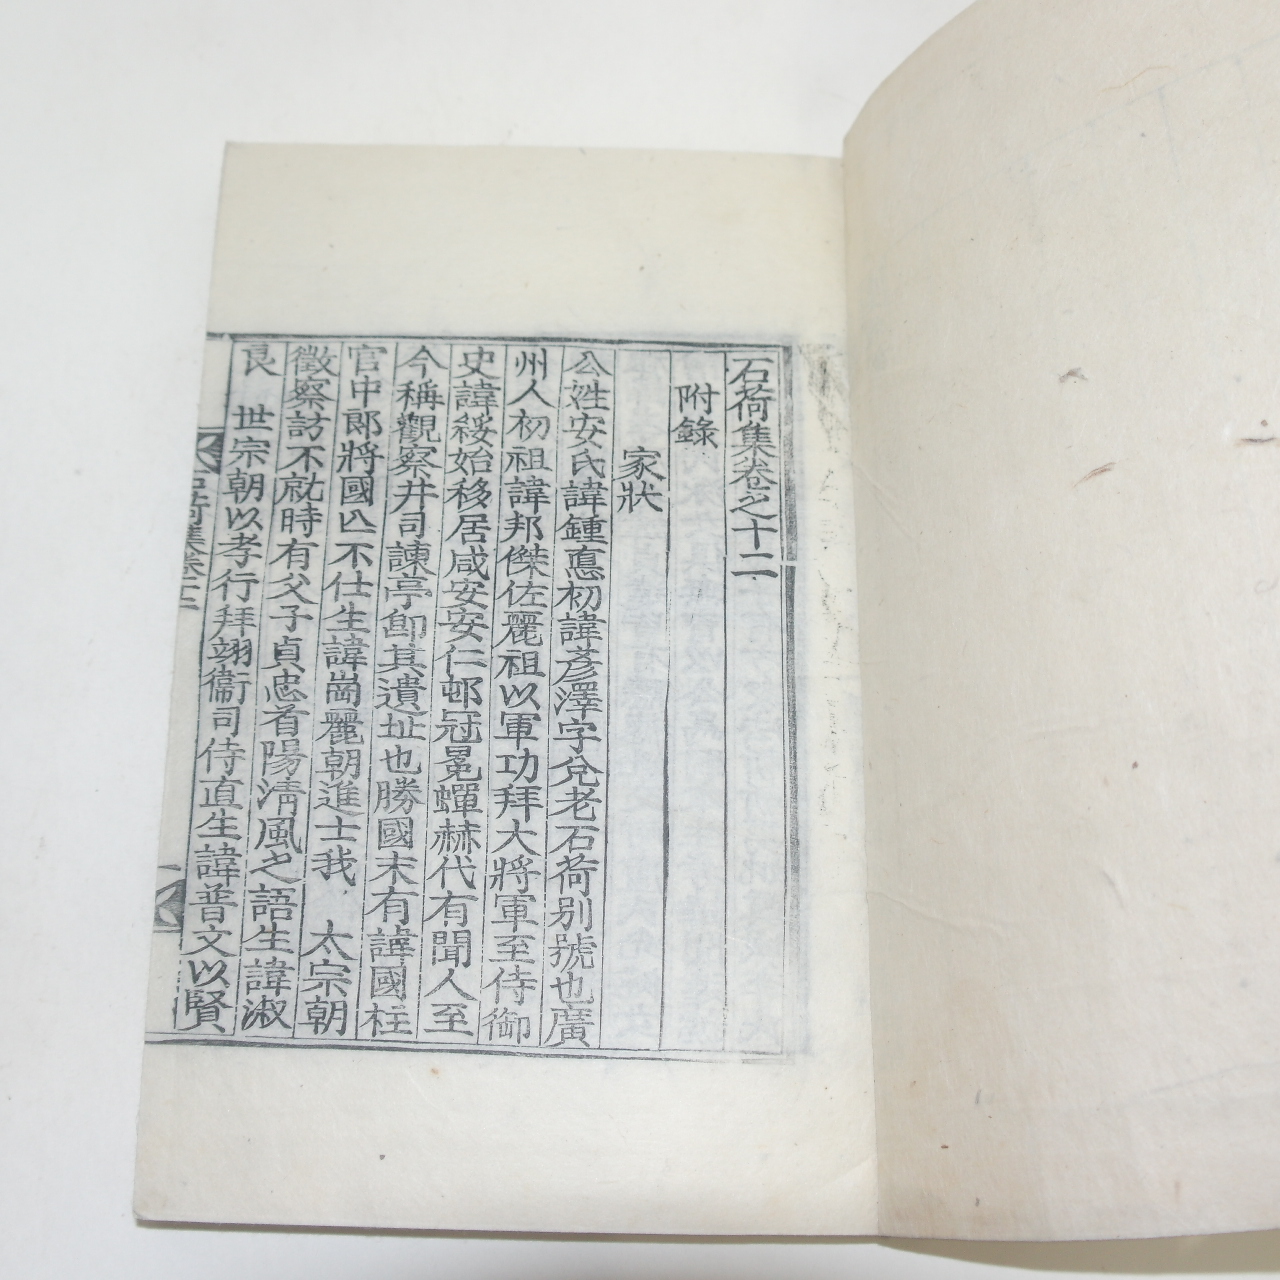 石荷集卷之十二
附錄
家狀
公姓安氏諱鍾悳初諱彥澤字兌老石荷別號也廣
州人初祖諱邦傑佐麗祖以軍功拜大將軍至侍御
史諱綏始移居咸安安仁邨冠冕蟬赫代有聞人至
今稱觀察井司諫亭卽其遺址也勝國末有諱國柱
官中郞將國亾不仕生諱崗麗朝進士我 太宗朝
徵察訪不就時有父子貞忠首陽淸風之語生諱淑
良 世宗朝以孝行拜翊衞司侍直生諱普文以賢
石荷集卷十二